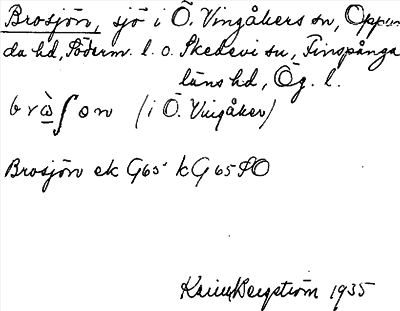 Brosjön, sjö i Ö. Vingåkers sn, Oppun
da hd, Söderm. l. o. Skedevi sn, Finspånga
läns hd, Ög. l.
brὼʃon (i Ö. Vingåker)
Brosjön ek G65 kG65SO
Karin Bergström 1935